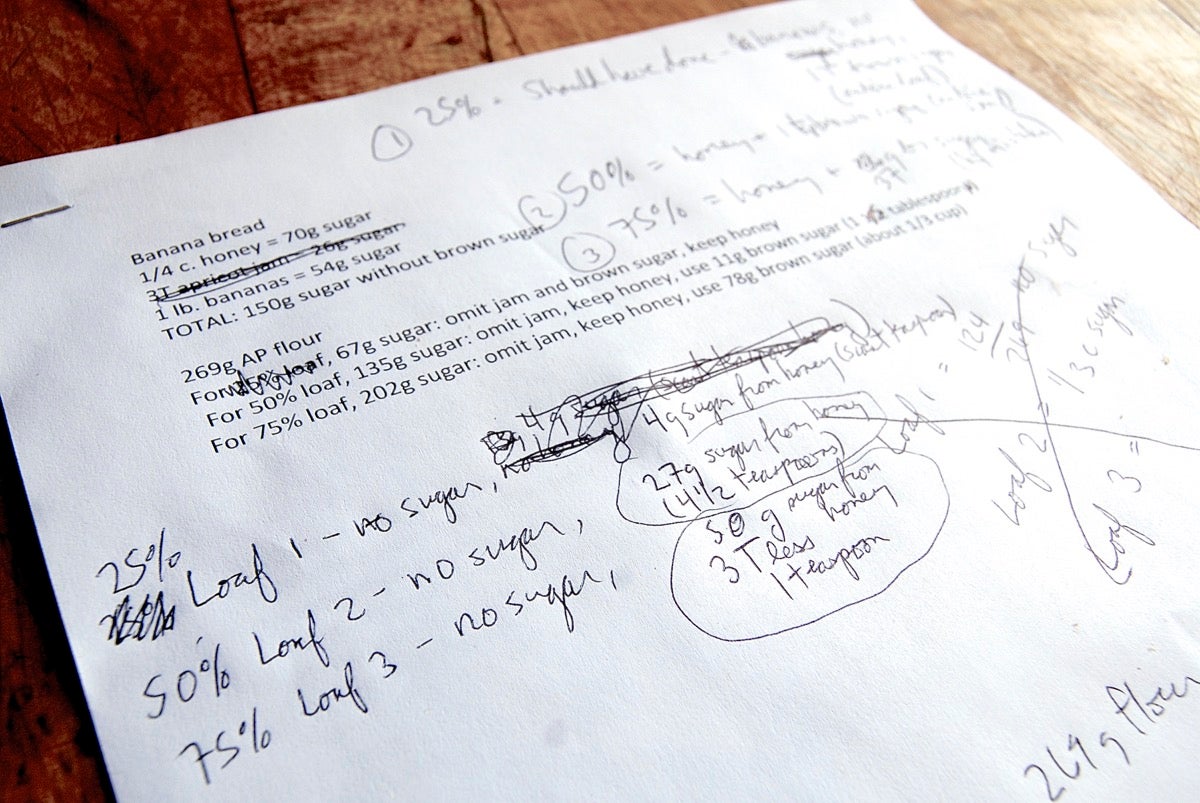 ① 25% = Should have done - bananas, no
honey,
② 50% = honey +
③ 75% = honey +
Banana bread
1/4 c. honey = 70g sugar
3T apricot jam = 26g sugar
1 lb. bananas = 54g sugar
TOTAL: 150g sugar without brown sugar
269g AP flour
For 25% loaf, 67g sugar: omit jam and brown sugar, keep honey
For 50% loaf, 135g sugar: omit jam, keep honey, use 11g brown sugar (1 tablespoon)
For 75% loaf, 202g sugar: omit jam, keep honey, use 78g brown sugar (about 1/3 cup)
4g sugar from honey (scant teaspoon)
27g sugar from honey
(4 1/2 teaspoons)
50 g sugar from
honey
3 T less
1 teaspoon
25% Loaf 1 - no sugar,
50% Loaf 2 - no sugar,
75% Loaf 3 - no sugar,
Loaf 1 = 124/269 no sugar
Loaf 2 = 1/3 c sugar
Loaf 3 =
269 g flour